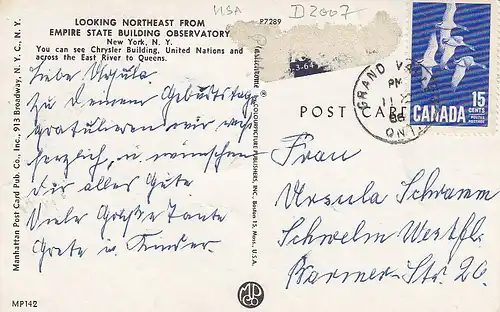 USA
D2007
LOOKING NORTHEAST FROM
EMPIRE STATE BUILDING OBSERVATORY
New York, N. Y.
You can see Chrysler Building, United Nations and
across the East River to Queens.
P7289
Liebe Ursula.
Zu Deinem Geburtstage
gratulieren wir
herzlich, u. wünschen
Dir alles Gute
Viele Grüße Tante
Grete u. Kinder.
Manhattan Post Card Pub. Co., Inc., 913 Broadway, N. Y. C., N. Y.
MP142
Plastichrome ® COLOURPICTURE PUBLISHERS, INC., Boston 15, Mass., U.S.A.
POST CARD
GRAND
PM
ONT
15
CENTS
CANADA
POSTES POSTAGE
Frau
Ursula Schramm
Schwelm Westfl.
Barmer-Str. 26.
MPCO